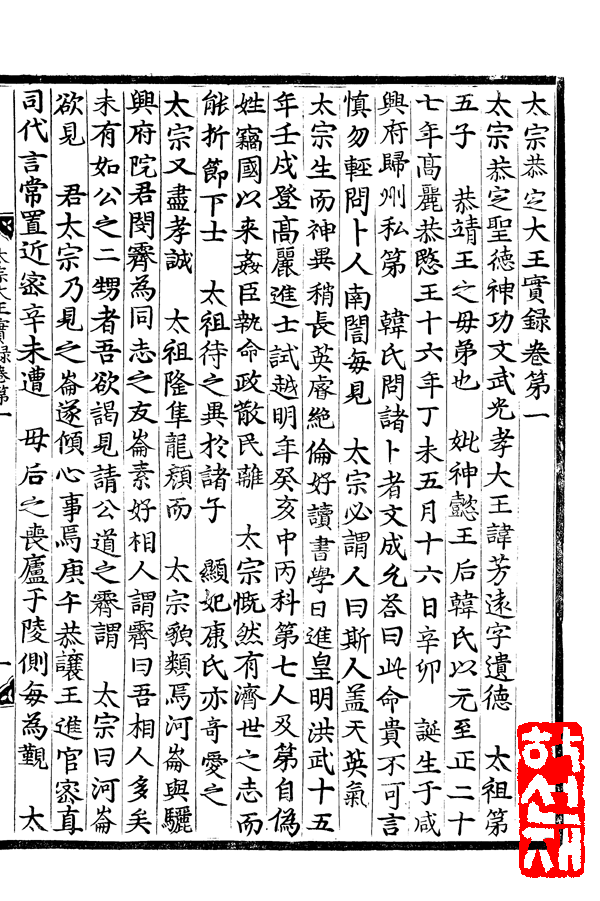 太宗恭定大王實録卷第一
太宗恭定聖德神功文武光孝大王諱芳遠字遺德　太祖第
五子　恭靖王之母弟也　妣神懿王后韓氏以元至正二十
七年高麗恭愍王十六年丁未五月十六日辛卯　誕生于咸
興府歸州私第　韓氏問諸卜者文成允答曰此命貴不可言
慎勿輕問卜人南誾每見　太宗必謂人曰斯人盖天英氣
太宗生而神異稍長英睿絶倫好讀書學日進皇明洪武十五
年壬戌登高麗進士試越明年癸亥中丙科第七人及第自偽
姓竊國以来姦臣執命政散民離　太宗慨然有濟世之志而
能折節下士　太祖待之異於諸子　顯妃康氏亦奇愛之
太宗又盡孝誠　太祖隆隼龍顔而　太宗貌類焉河崙與驪
興府院君閔霽為同志之友崙素好相人謂霽曰吾相人多矣
未有如公之二甥者吾欲謁見請公道之霽謂　太宗曰河崙
欲見　君太宗乃見之崙遂傾心事焉庚午恭讓王進官密直
司代言常置近密辛未遭　母后之喪廬于陵側每為覲　太
太宗大王實録卷第一
一
학선재